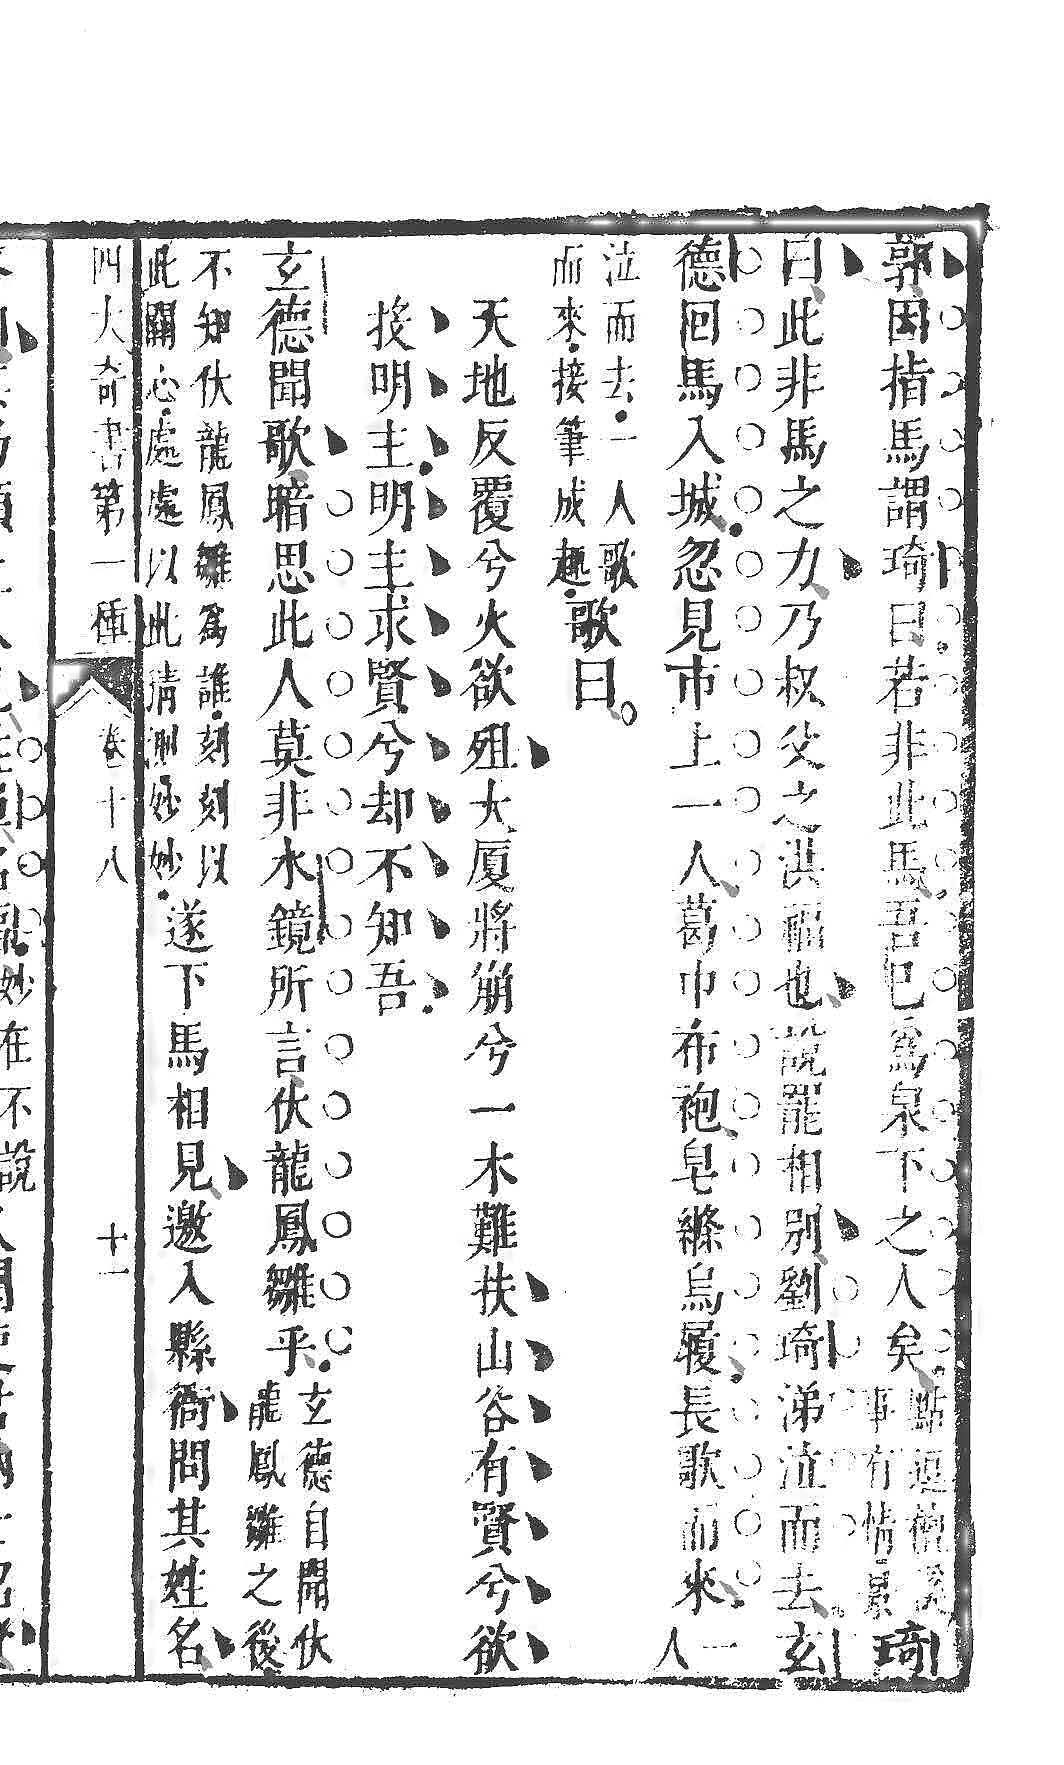 郭因指馬謂琦曰若非此馬吾已爲泉下之人矣點逗檀溪事有情景琦
曰此非馬之力乃叔父之洪福也說罷相別劉琦涕泣而去玄
德回馬入城忽見市上一人葛巾布袍皂絛烏履長歌而來一人
泣而去一人歌而來接筆成趣歌曰
天地反覆兮火欲殂大廈將崩兮一木難扶山谷有賢兮欲
投明主明主求賢兮却不知吾
玄德聞歌暗思此人莫非水鏡所言伏龍鳳雛乎玄德自聞伏龍鳳雛之後
不知伏龍鳳雛爲誰刻刻以此關心處處以此猜測妙妙遂下馬相見邀入縣衙問其姓名
四大奇書第一種 卷十八 十一
妙在不說